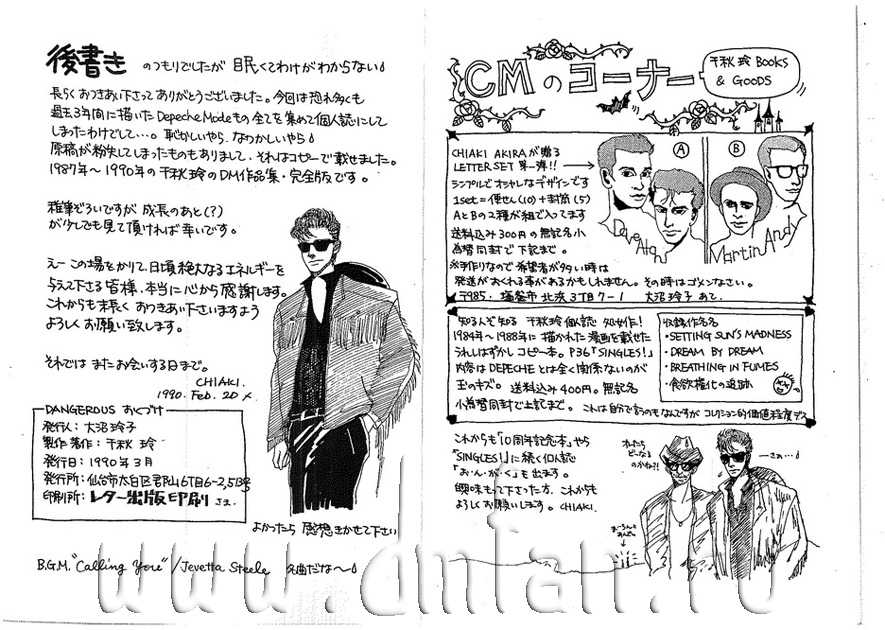 後書き のつもりでしたが 眠くてわけがわからない♪
長らくおつきあい下さってありがとうございました。今回は恐れ多くも
過去3年間に描いたDepeche Modeもの全てを集めて個人誌にして
しまったわけでして…。恥かしいやら、なつかしいやら♪
原稿が紛失してしまったものもありまして、それはコピーで載せました。
1987年〜1990年の千秋玲のDM作品集・完全版です。
雑筆ぞろいですが 成長のあと(?)
が少しでも見て頂ければ幸いです。
えー この場をかりて、日頃絶大なるエネルギーを
与えて下さる皆様、本当に心から感謝します。
これからも末長く おつきあい下さいますよう
よろしくお願い致します。
それでは またお会いする日まで。
CHIAKI.
1990. Feb. 20
DANGEROUS おくづけ
発行人：大沼玲子
製作著作：千秋 玲
発行日：1990年3月
発行所：仙台市太白区郡山6丁目6-2,513号
印刷所：レター出版印刷 さま
よかったら 感想きかせて下さい
B.G.M. "Calling You" / Jevetta Steele 名曲だな〜♪
CMのコーナー
千秋玲 BOOKS & GOODS
CHIAKI AKIRAが贈る
LETTER SET 第一弾!!
シンプルでオシャレなデザインです
1set=便せん(10)+封筒(5)
AとBの2種が組で入ってます
送料込み300円の無記名小
為替同封で下記まで。
※手作りなので希望者が多い時は
発送がおくれる事があるかもしれません。その時はゴメンなさい。
〒985. 塩釜市 北浜 3丁目7-1 大沼玲子 あて.
A
B
Dave
Alan
Martin
Andy
知る人ぞ知る 千秋玲個人誌 処女作!
1984年〜1988年に描かれた漫画を載せた
うれしはずかしコピー本。P36「SINGLES!」
内容はDEPECHEとは全く関係ないのが
玉のキズ。送料込み400円。無記名
小為替同封で上記まで。これは自分で言うのもなんですが コレクション的価値程度デス
収録作品名
・SETTING SUN'S MADNESS
・DREAM BY DREAM
・BREATHING IN FUMES
・食欲権化の追跡
これからも「10周年記念本」やら
「SINGLES!」に続く個人誌
「お・ん・が・く」も出ます。
興味もって下さった方、これからも
よろしくお願いします。CHIAKI.
オレたち
どーなる
のかね?!
—さぁ…♪
www.dmfan.ru